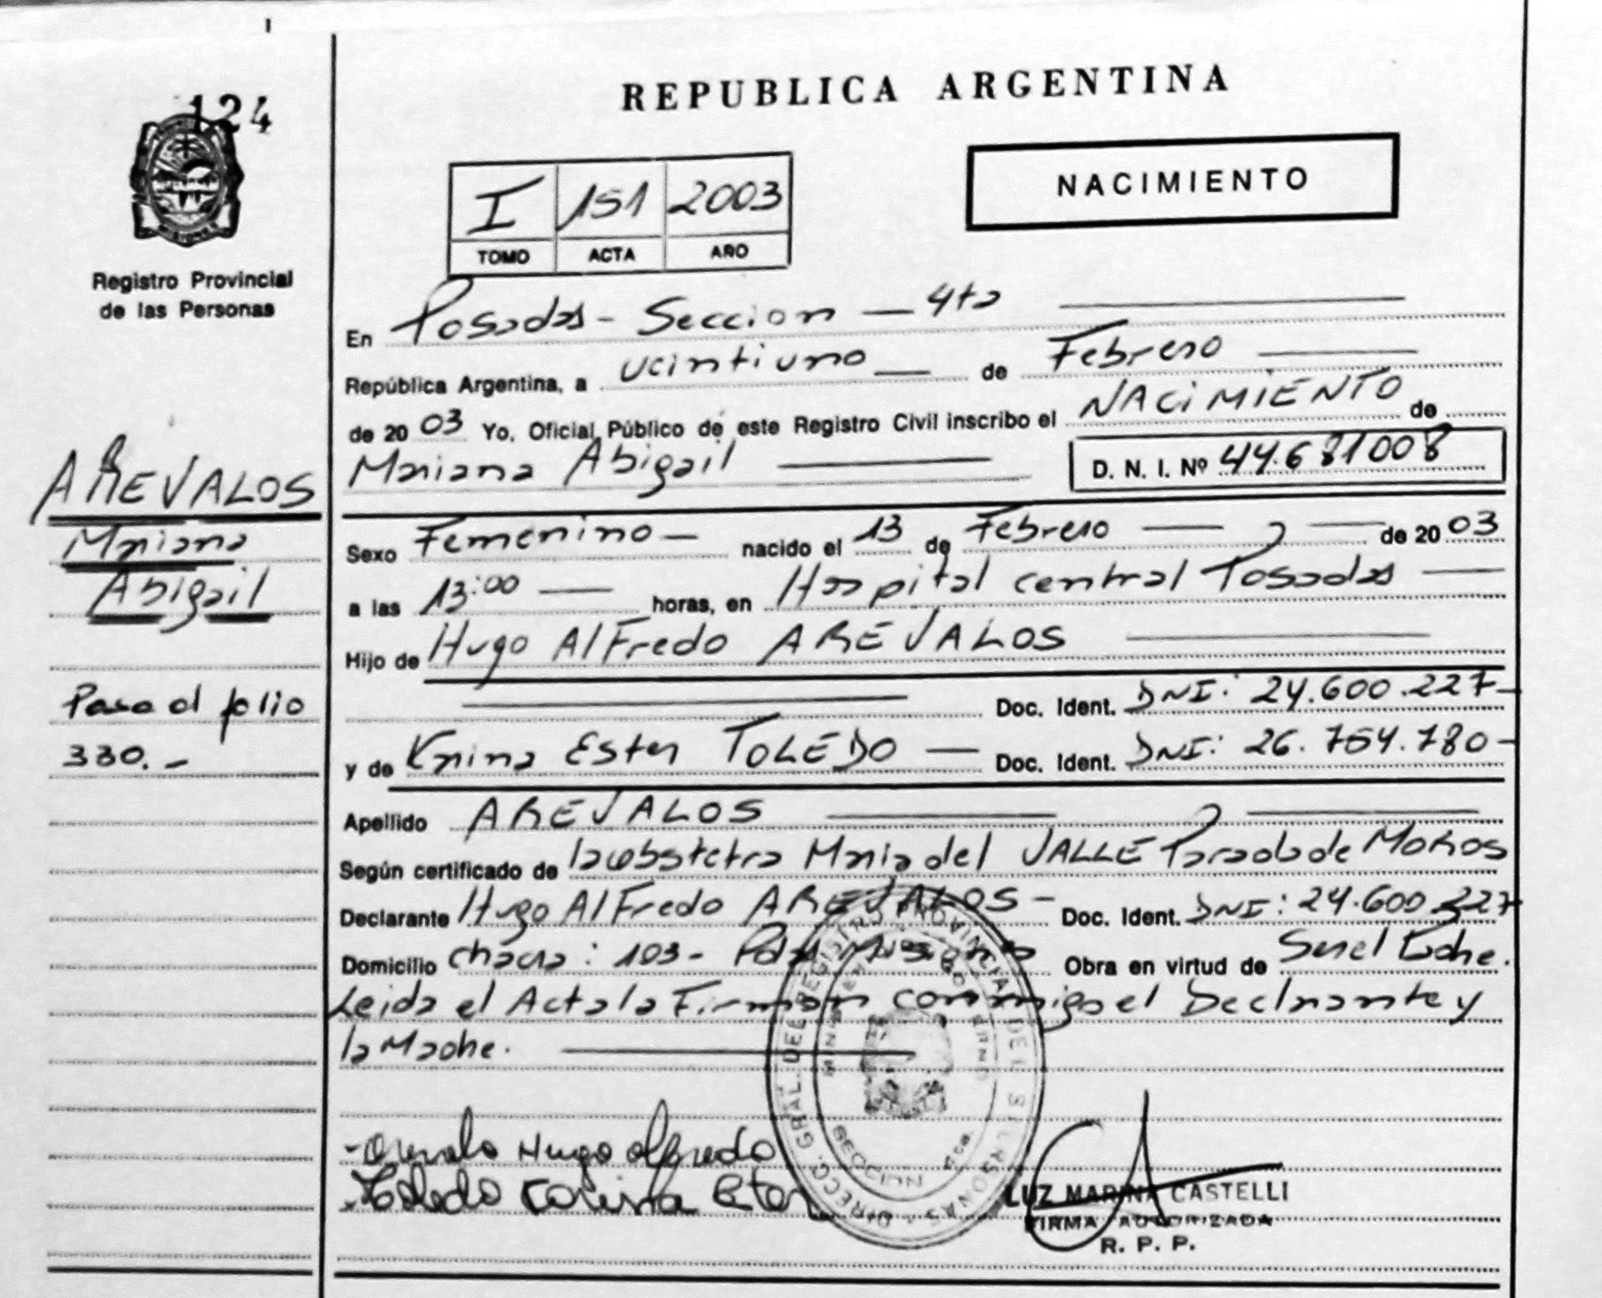 124
Registro Provincial
de las Personas
AREVALOS
Mariana
Abigail
Pasa al folio
330.-
REPUBLICA ARGENTINA
NACIMIENTO
I 151 2003
TOMO ACTA AÑO
En Posadas - Seccion - 4ta
República Argentina, a veintiuno de Febrero
de 2003 Yo, Oficial Público de este Registro Civil inscribo el NACIMIENTO de
Mariana Abigail D. N. I. Nº 44.681008
Sexo Femenino - nacido el 13 de Febrero de 2003
a las 13:00 horas, en Hospital central Posadas
Hijo de Hugo AlFredo AREVALOS
Doc. Ident. DNI: 24.600.227-
y de Karina Ester TOLEDO Doc. Ident. DNI: 26.754.780-
Apellido AREVALOS
Según certificado de la obstetra Maria del VALLE Parada de MOROS
Declarante Hugo AlFredo AREVALOS - Doc. Ident. DNI: 24.600.227
Domicilio chacra: 103- Pdas Misiones Obra en virtud de Ser el Padre.
Leida el Acta la Firman conmigo el Declarante y
la Madre.
Hugo Alfredo
Toledo Karina Ester
DIRECC. GRAL. DEL REGISTRO PROVINCIAL DE LAS PERSONAS
LUZ MARINA CASTELLI
FIRMA AUTORIZADA
R. P. P.